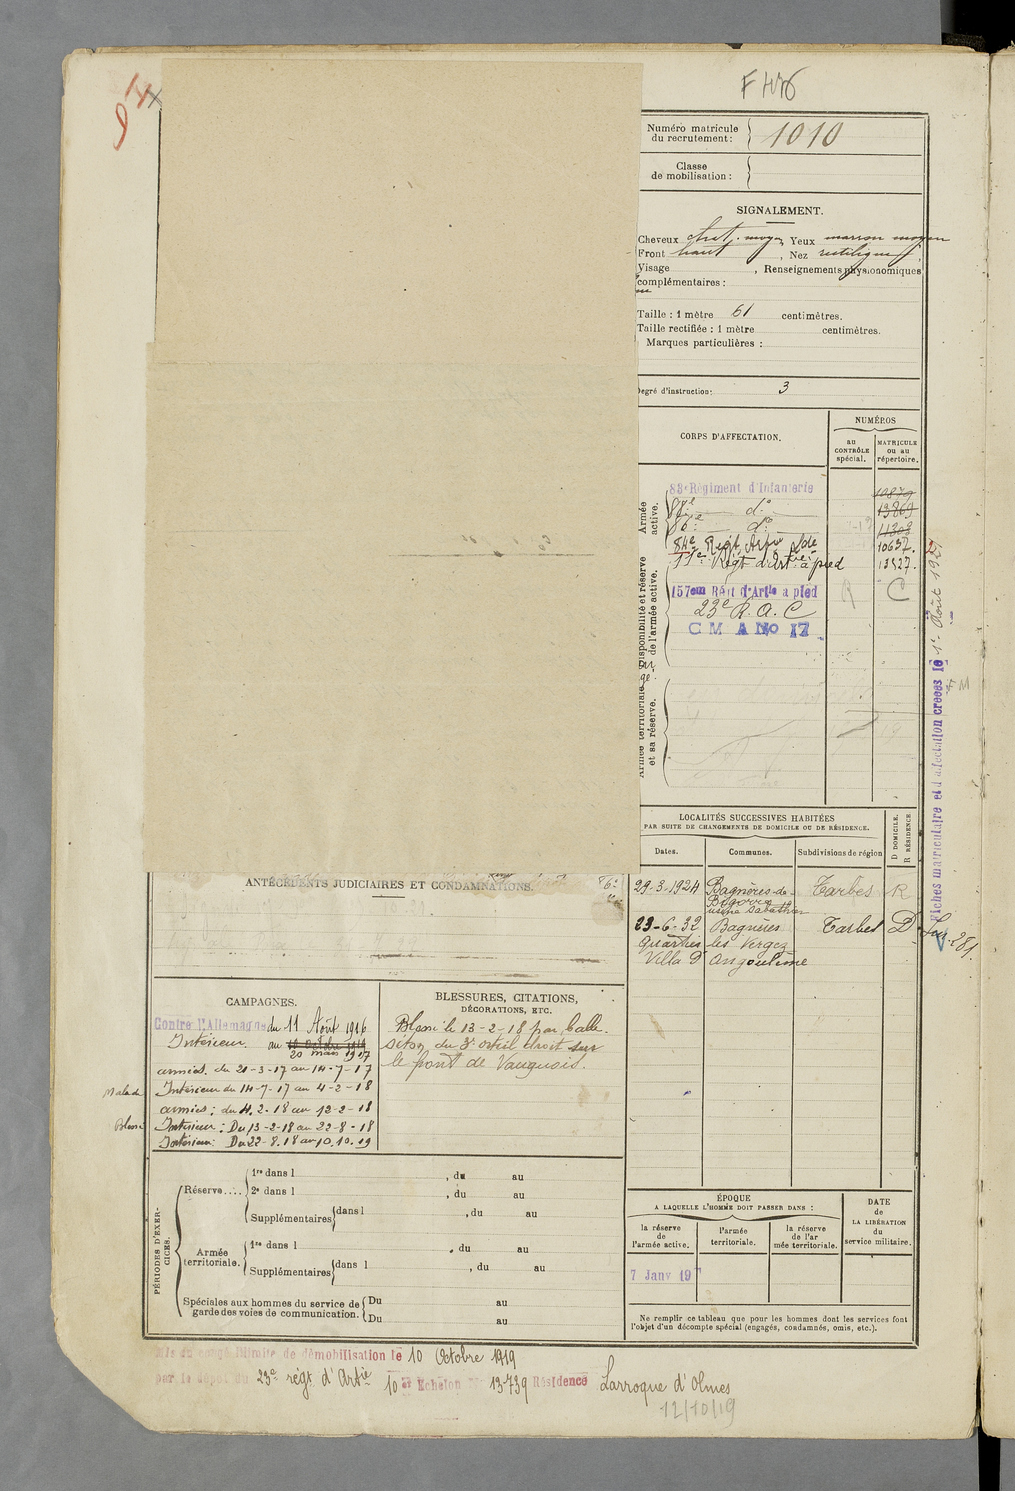 F M6
Numéro matricule
du recrutement : 1010
Classe
de mobilisation :
SIGNALEMENT.
Cheveux chat. moyen Yeux marron moyen
Front haut , Nez rectiligne
Visage , Renseignements physionomiques
complémentaires :
Taille : 1 mètre 61 centimètres.
Taille rectifiée : 1 mètre centimètres.
Marques particulières :
Degré d'instruction: 3
CORPS D'AFFECTATION.
NUMÉROS
au
CONTRÔLE
spécial.
MATRICULE
ou au
répertoire.
Armée
active.
83e Régiment d'Infanterie 10879
88e do 13869
16e do 11303
84e Régt Artie Lde 10637.
11e Régt d'Artie à pied 13527.
Disponibilité et réserve
de l'armée active.
157eme Régt d'Artie a pied R C
23e R. A. C
C M A No 17
Armée territoriale
et sa réserve.
LOCALITÉS SUCCESSIVES HABITÉES
PAR SUITE DE CHANGEMENTS DE DOMICILE OU DE RÉSIDENCE.
Dates.
Communes.
Subdivisions de région
D DOMICILE.
R RÉSIDENCE
29-3-1924 Bagnères-de- Tarbes R
Bigorre
usine Sabathier
23-6-32 Bagnères Tarbes D
Quartier les Vergez
Villa D'Angoulême
Fiches matriculaire et d'affectation créées le 1er Août 1921
ANTÉCÉDENTS JUDICIAIRES ET CONDAMNATIONS.
CAMPAGNES.
Contre l'Allemagne du 11 Août 1916
Intérieur. au 10 octobre 1919
20 mars 1917
armées. du 21-3-17 au 14-7-17
Malade Intérieur du 14-7-17 au 4-2-18
armées : du 4.2-18 au 12-2-18
Blessé Intérieur : Du 13-2-18 au 22-8-18
Intérieur: Du 22-8.18 au 10.10.19
BLESSURES, CITATIONS,
DÉCORATIONS, ETC.
Blessé le 13-2-18 par balle.
séton du 3e orteil droit sur
le front de Vauquois.
PÉRIODES D'EXER-
CICES.
Réserve....
1re dans l , du au
2e dans l , du au
Supplémentaires dans l , du au
Armée
territoriale.
1re dans l , du au
Supplémentaires dans l , du au
Spéciales aux hommes du service de
garde des voies de communication.
Du au
Du au
ÉPOQUE
A LAQUELLE L'HOMME DOIT PASSER DANS :
la réserve
de
l'armée active.
l'armée
territoriale.
la réserve
de l'ar
mée territoriale.
DATE
de
LA LIBÉRATION
du
service militaire.
7 Janv 19
Ne remplir ce tableau que pour les hommes dont les services font
l'objet d'un décompte spécial (engagés, condamnés, omis, etc.).
Mis en congé illimité de démobilisation le 10 Octobre 1919
par le dépôt du 23e régt d'Artie 10e Echelon No 13739 Résidence Larroque d'Olmes
12/10/19